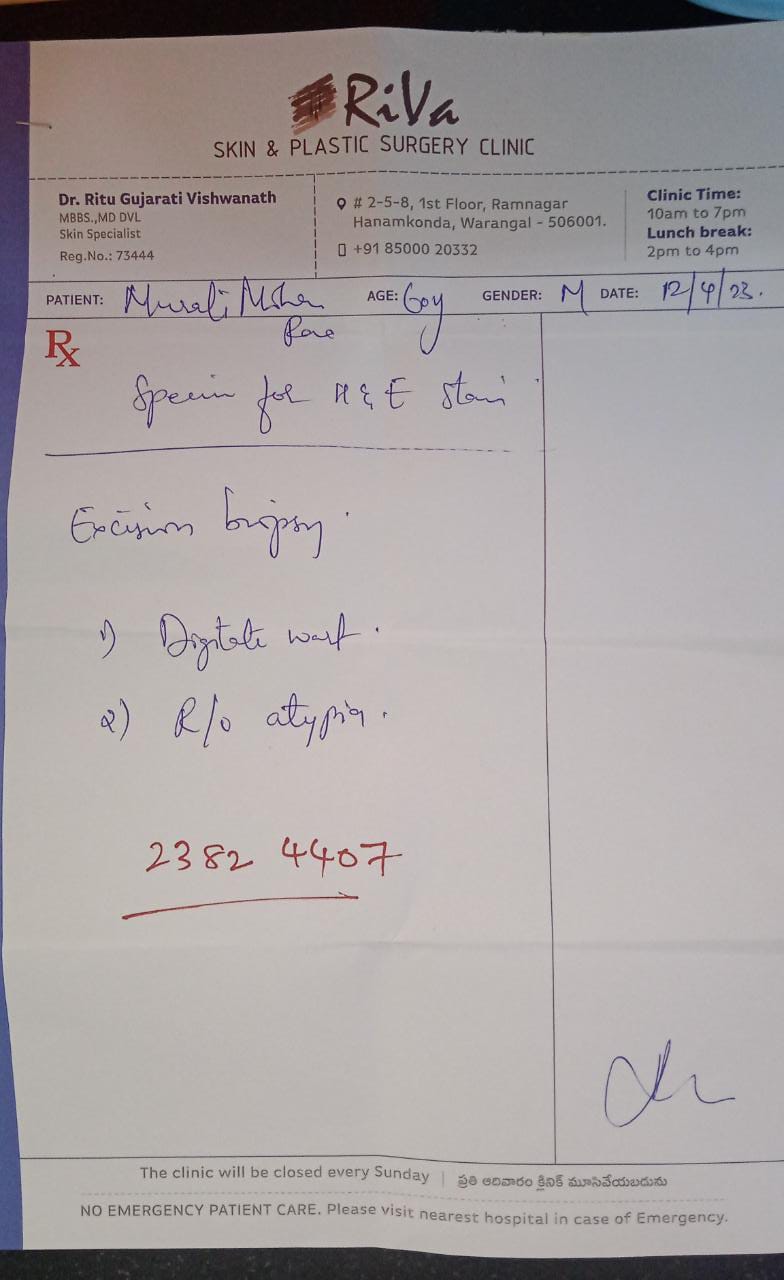 RiVa
SKIN & PLASTIC SURGERY CLINIC
Dr. Ritu Gujarati Vishwanath
MBBS.,MD DVL
Skin Specialist
Reg.No.: 73444
# 2-5-8, 1st Floor, Ramnagar
Hanamkonda, Warangal - 506001.
+91 85000 20332
Clinic Time:
10am to 7pm
Lunch break:
2pm to 4pm
PATIENT: Murali Mohan AGE: 60y GENDER: M DATE: 12/4/23.
Rao
Rx
for H & E Stain
Excision biopsy.
1) Digitate wart.
2) R/o atypia.
2382 4407
The clinic will be closed every Sunday | ప్రతి ఆదివారం క్లినిక్ మూసివేయబడును
NO EMERGENCY PATIENT CARE. Please visit nearest hospital in case of Emergency.